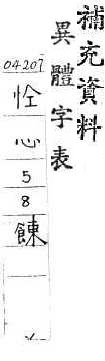 補充資料
異體字表
04207
恮
心
5
8
餗